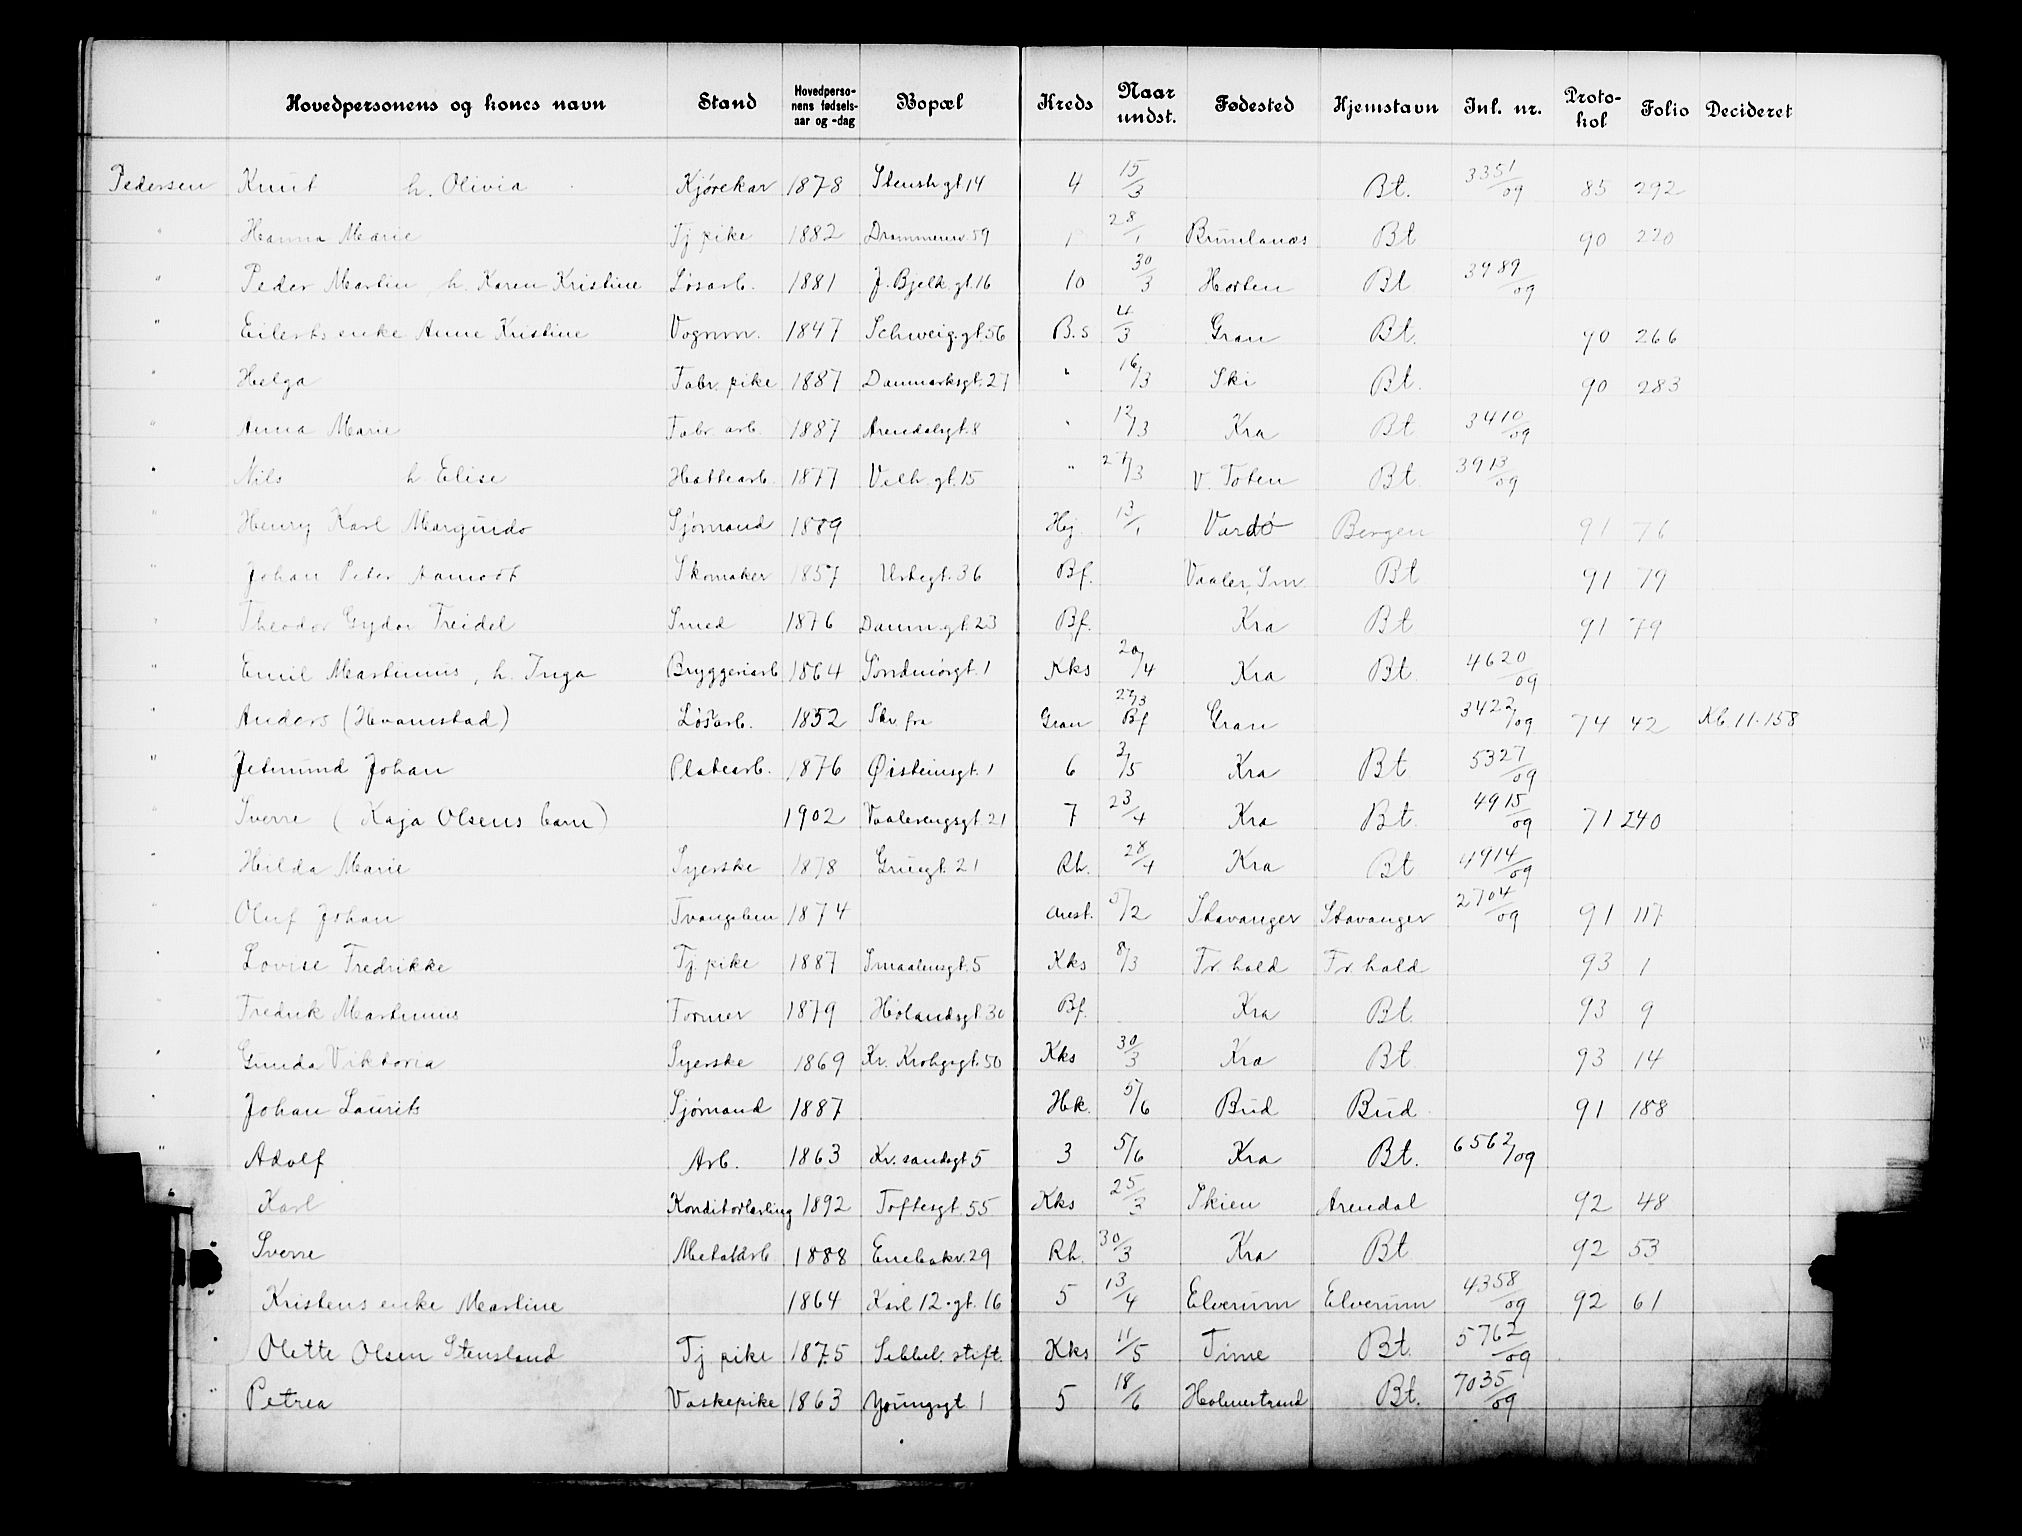 Hovedpersonens og kones navn Stand Hovedperso-nens fødsels-aar og -dag Bopæl Kreds Naar undst. Fødested Hjemstavn Inl. nr. Proto-kol Folio Decideret
Pedersen Knut h. Olivia Kjørekar 1878 Stenstr.gt 14 4 15/3 Bt. 3351/09 85 292
" Hanna Marie Tj pike 1882 Drammensv. 59 28/1 Brunlanæs Bt 90 220
" Peder Martin, h. Karen Kristine Løsarb. 1881 J. Bjelk. gt. 16 10 30/3 Horten Bt 3989/09
" Eilerts enke Anne Kristine Vognm. 1847 Schweig. gt. 56 B.s 4/3 Gran Bt. 90 266
" Helga Fabr. pike 1887 Danmarksgt. 27 " 16/3 Ski Bt. 90 283
" Anna Marie Fabr. arb. 1887 Arendalsgt. 8 " 12/3 Kra Bt 3410/09
" Nils h. Elise Hattearb. 1877 Velh. gt. 15 " 27/3 V. Toten Bt 3913/09
" Henry Karl Margindo Sjömand 1889 Hej. 13/1 Vardö Bergen 91 76
" Johan Peter Aamodt Skomaker 1857 Urtegt. 36 Bf. Vaaler, Sm. Bt 91 79
" Theodor Gydor Treidel Smed 1876 Danm. gt. 23 Bf. Kra Bt 91 79
" Emil Martinius, h. Inga Bryggeriarb 1864 Söndmörgt. 1 Kks 20/4 Kra Bt. 4620/09
" Anders (Hvamstad) Løsarb. 1852 Skr. fra Gran 27/3 Bf Gran 3422/09 74 42 Kb. 11-158
" Jetmund Johan Platearb. 1876 Øisteinsgt. 1 6 3/5 Kra Bt 5327/09
" Sverre (Kaja Olsens barn) 1902 Vaalerengsgt. 21 7 23/4 Kra Bt. 4915/09 71 240
" Hilda Marie Syerske 1878 Grüsgt. 21 Rh. 28/4 Kra Bt 4914/09
" Oluf Johan Tvangslem 1874 Arest. 5/2 Stavanger Stavanger 2704/09 91 117
" Lovise Fredrikke Tj. pike 1887 Smaalensgt. 5 Kks 8/3 Fr. hald Fr. hald 93 1
" Fredrik Martinius Former 1879 Hölandsgt. 30 Bf. Kra Bt. 93 9
" Gunda Viktoria Syerske 1869 Kr. Krohgsgt. 50 Kks 30/3 Kra Bt. 93 14
" Johan Laurits Sjömand 1887 Hk. 5/6 Bud Bud 91 188
" Adolf Arb. 1863 Kr.sandsgt 5 3 5/6 Kra Bt. 6562/09
Karl Konditorlærling 1892 Toftesgt. 55 Kks 25/3 Skien Arendal 92 48
Sverre Metalarb. 1888 Enebakv. 29 Rh. 30/3 Kra Bt 92 53
Kristens enke Martine 1864 Karl 12. gt. 16 5 13/4 Elverum Elverum 4358/09 92 61
" Olette Olsen Stensland Tj pike 1875 Sebbel. stift. Kks 11/5 Time Bt. 5762/09
" Petrea Vaskepike 1863 Youngsgt. 1 5 18/6 Holmestrand Bt. 7035/09